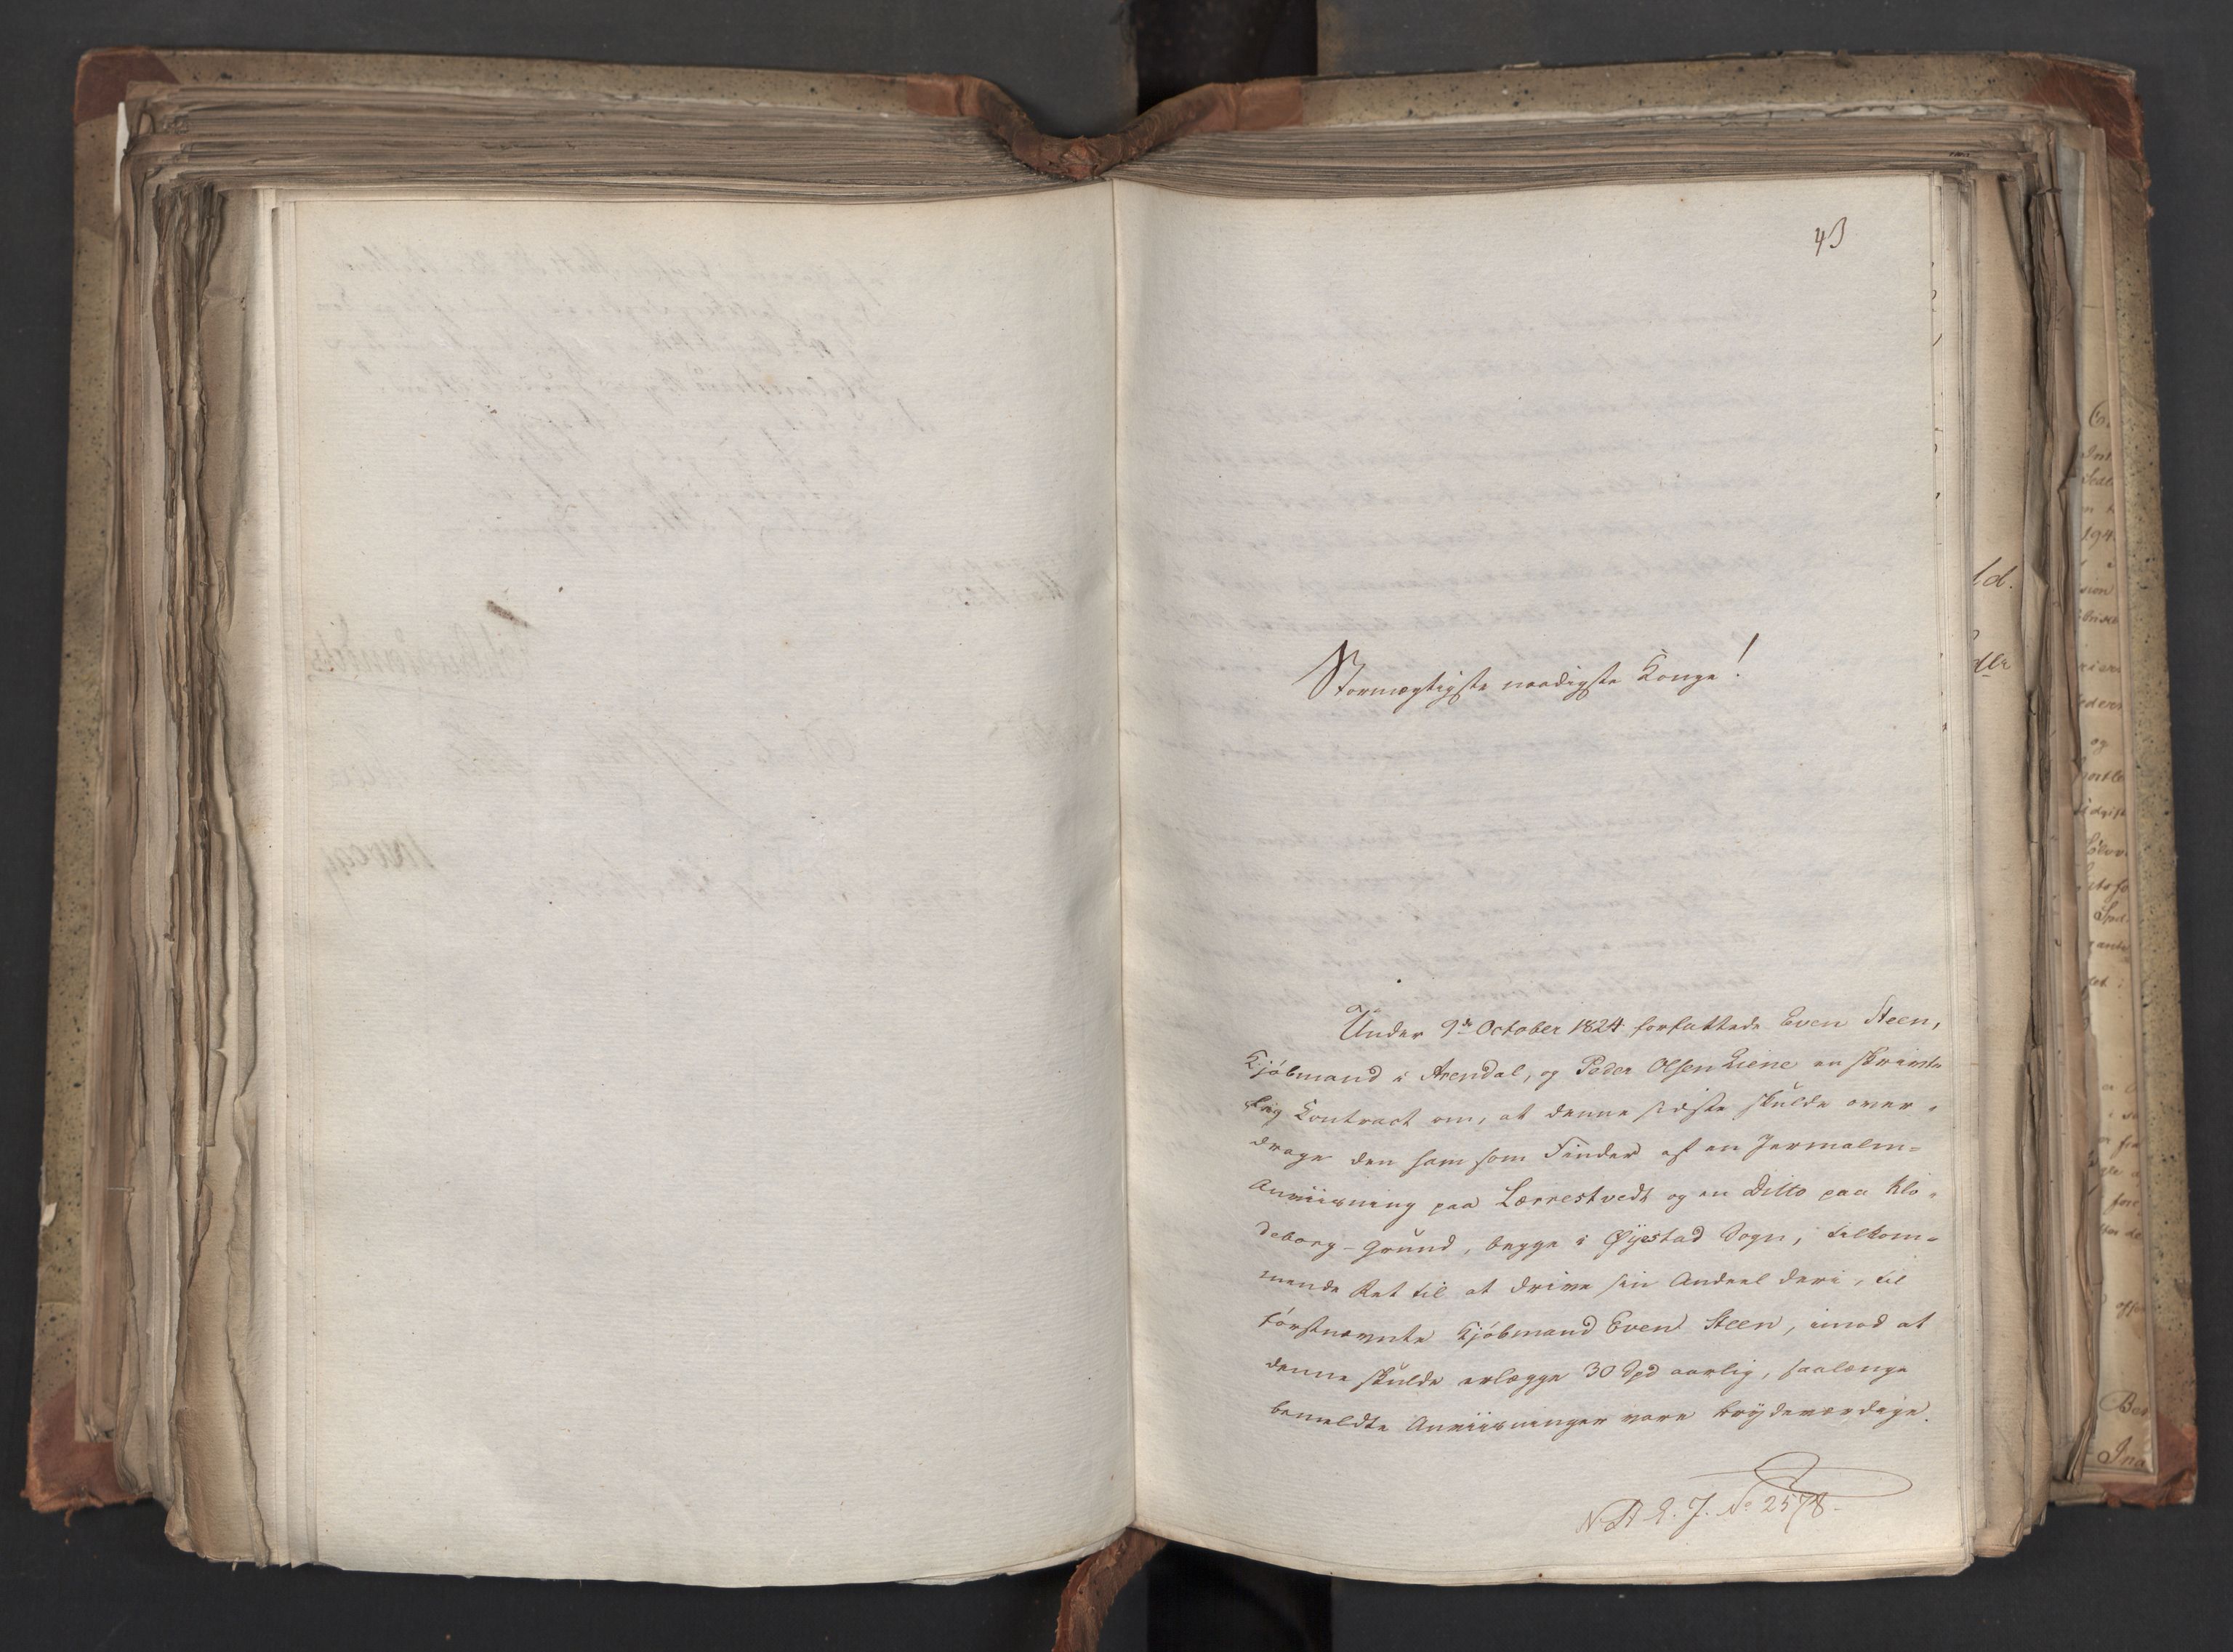 43
Stormægtigste naadigste Konge!
Under 9de October 1824 forfattede Even Steen,
Kjöbmand i Arendal, og Peder Olsen Liene en skrivt-
lig Contract om, at denne sidste skulde over-
drage den ham som Finder af en Jernmalm-
Anviisning paa Lærrestvedt og en Ditto paa Klo-
deborg-Grund, begge i Øyestad Sogn, tilkom-
mende Ret til at drive sin Andeel deri, til
förstnævnte Kjöbmand Even Steen, imod at
denne skulde erlægge 30 Spd aarlig, saalænge
bemeldte Anviisninger vare brydeværdige.
No 2578.